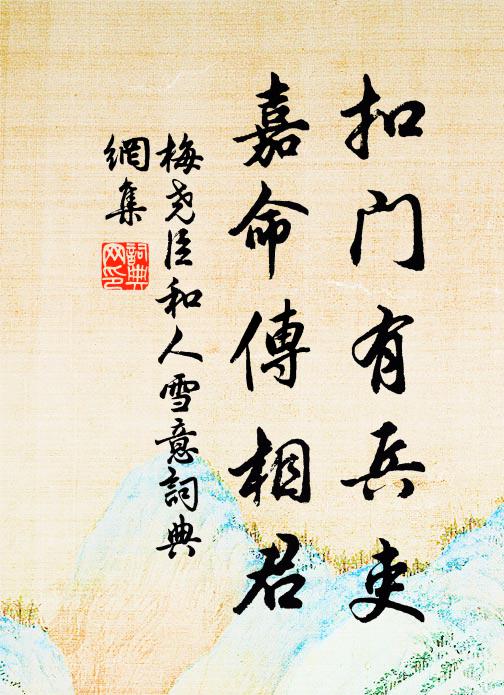 扣门有兵吏
嘉命傳相君
梅尧臣和人雪意詞典
網集
詞典
网印